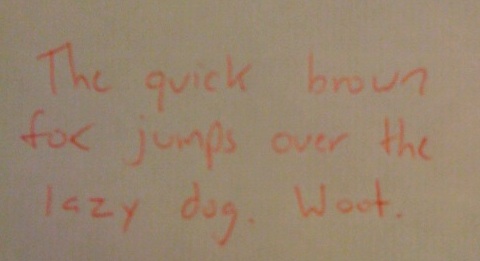 The quick brown
fox jumps over the
lazy dog. Woot.